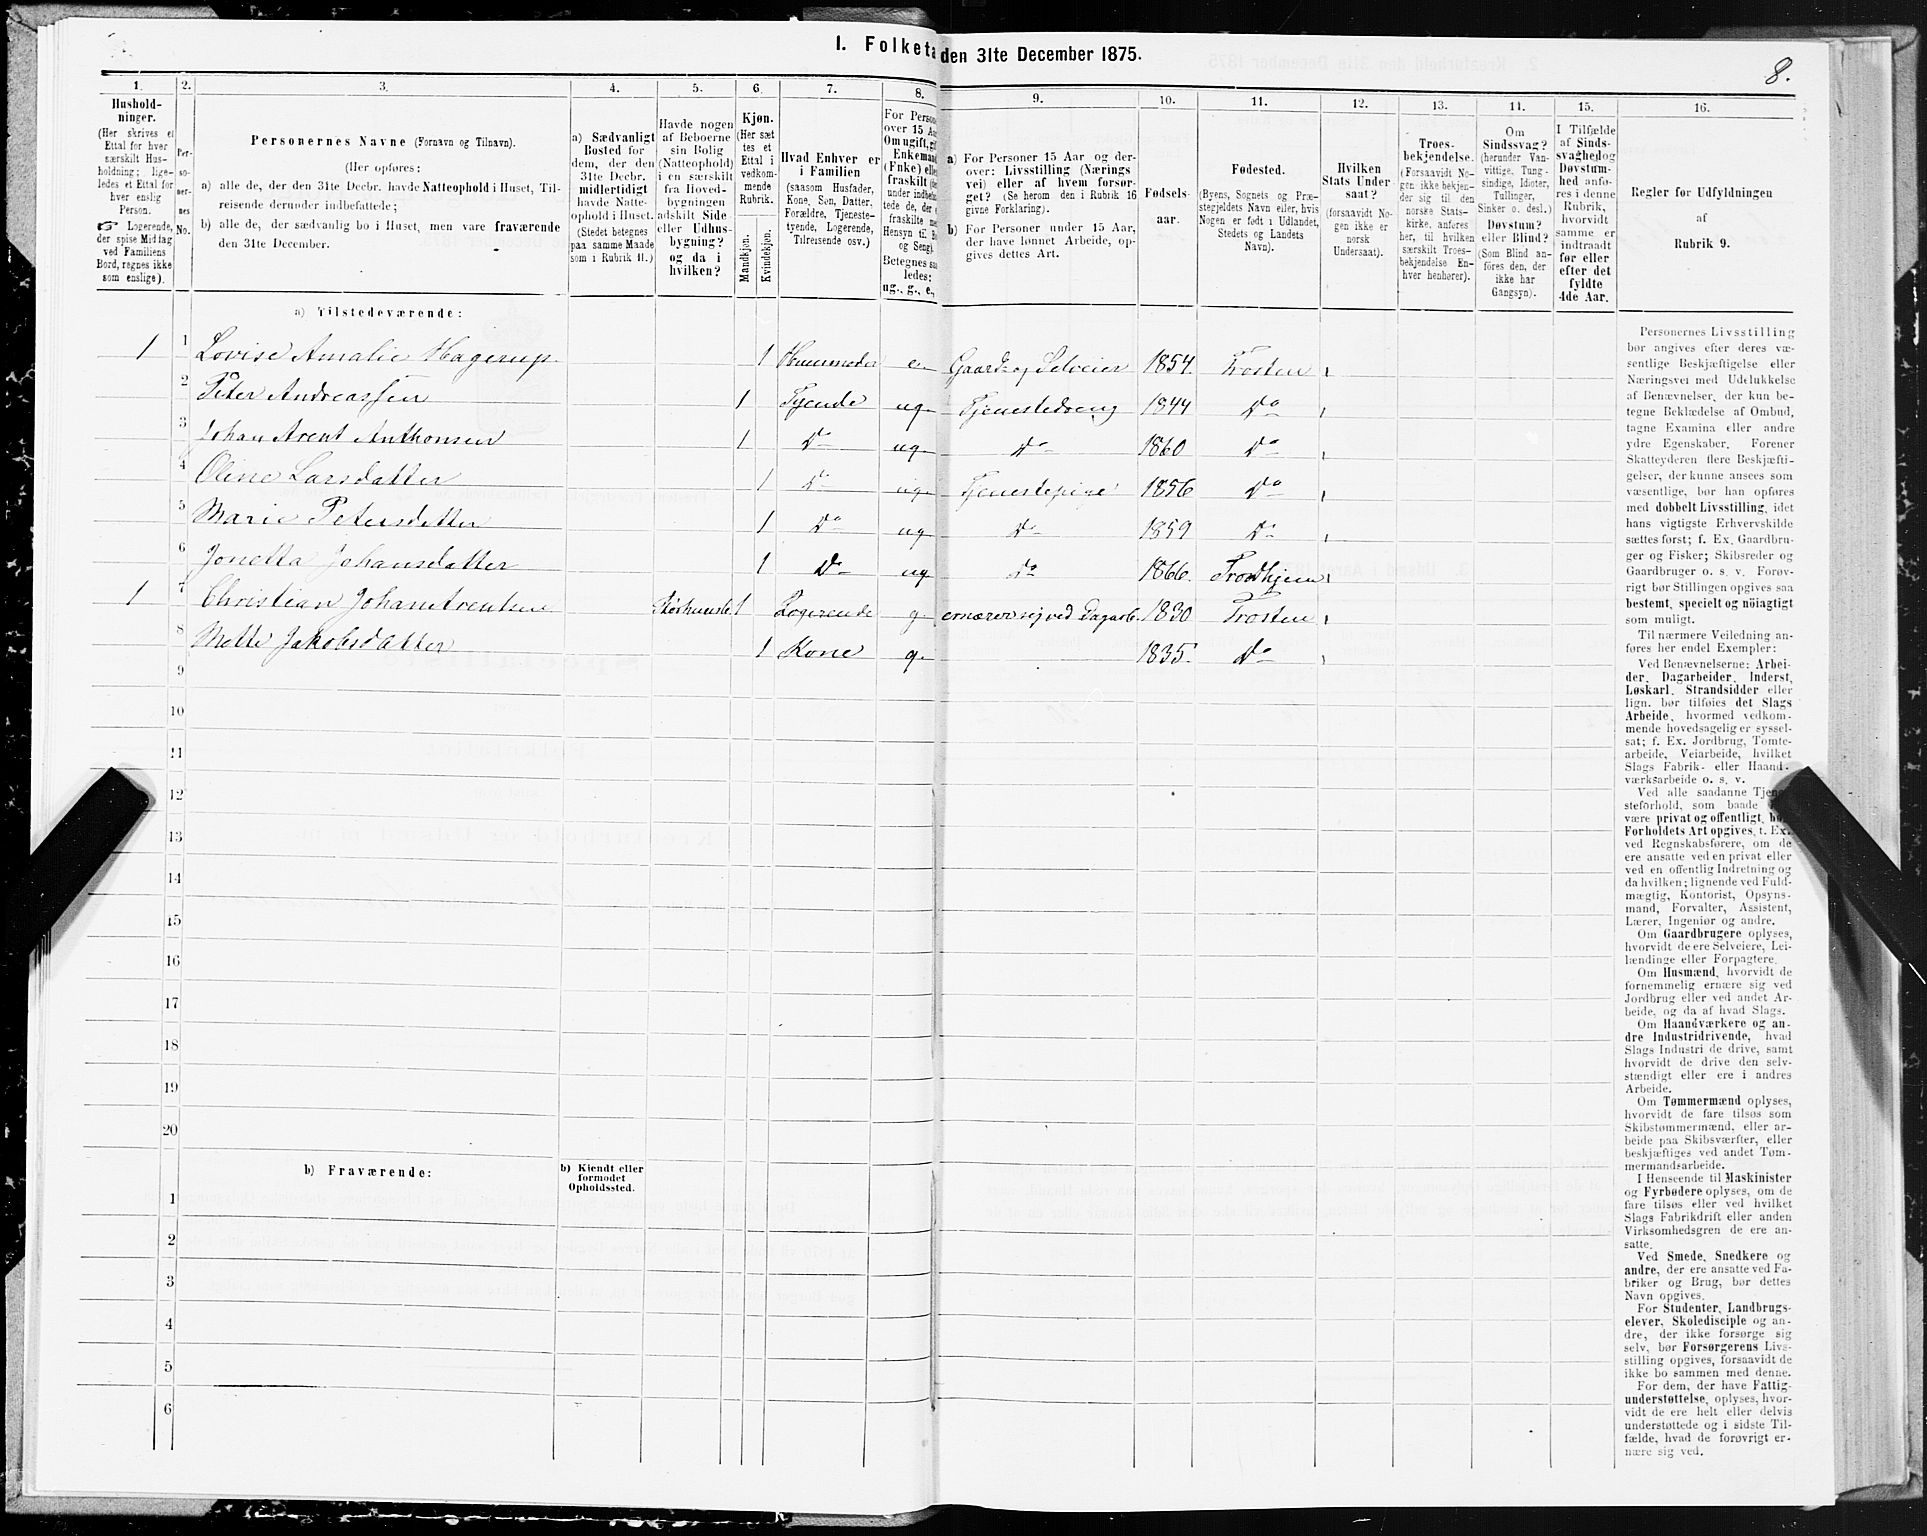 I. Folketa den 31te December 1875.
8.
1. 2. 3. 4. 5. 6. 7. 8. 9. 10. 11. 12. 13. 14. 15. 16.
Hushold-
ninger.
(Her skrives et
Ettal for hver
særskilt Hus-
holdning; lige-
ledes et Ettal for
hver enslig
Person.
☞ Logerende,
der spise Middag
ved Familiens
Bord, regnes ikke
som enslige).
Per-
so-
ner-
nes
No.
Personernes Navne (Fornavn og Tilnavn).
(Her opføres:
a) alle de, der den 31te Decbr. havde Natteophold i Huset, Til-
reisende derunder indbefattede;
b) alle de, der sædvanlig bo i Huset, men vare fraværende
den 31te December.
a) Sædvanligt
Bosted for
dem, der den
31te Decbr.
midlertidigt
havde Natte-
ophold i Huset.
(Stedet betegnes
paa samme Maade
som i Rubrik 11.)
Havde nogen
af Beboerne
sin Bolig
(Natteophold)
i en særskilt
fra Hoved-
bygningen
adskilt Side-
eller Udhus-
bygning?
og da i
hvilken?
Kjøn.
(Her sæt-
tes et
Ettal i
vedkom-
mende
Rubrik.
Mandkjøn.
Kvindekjøn.
Hvad Enhver er
i Familien
(saasom Husfader,
Kone, Søn, Datter,
Forældre, Tjeneste-
tyende, Logerende,
Tilreisende osv.)
For Person
over 15 Aa
Om ugift, gi
Enkemand
(Enke) elle
fraskilt (de
under indbefa
tede de, der e
fraskilte me
Hensyn til B
og Seng).
Betegnes saa
ledes:
ug., g., e.,
a) For Personer 15 Aar og der-
over: Livsstilling (Nærings-
vei) eller af hvem forsør-
get? (Se herom den i Rubrik 16
givne Forklaring).
b) For Personer under 15 Aar,
der have lønnet Arbeide, op-
gives dettes Art.
Fødsels-
aar.
Fødested.
(Byens, Sognets og Præ-
stegjeldets Navn eller, hvis
Nogen er født i Udlandet,
Stedets og Landets
Navn).
Hvilken
Stats Under-
saat?
(forsaavidt No-
gen ikke er
norsk
Undersaat).
Troes-
bekjendelse.
(Forsaavidt No-
gen ikke bekjen-
der sig til den
norske Stats-
kirke, anføres
her, til hvilken
særskilt Troes-
bekjendelse En-
hver henhører).
Om
Sindssvag?
(herunder Van-
vittige, Tung-
sindige, Idioter,
Tullinger,
Sinker o. desl.)
Døvstum?
eller Blind?
(Som Blind an-
føres den, der
ikke har
Gangsyn).
I Tilfælde
af Sinds-
svaghed og
Døvstum-
hed anfø-
res i denne
Rubrik,
hvorvidt
samme er
indtraadt
før eller
efter det
fyldte
4de Aar.
Regler for Udfyldningen
af
Rubrik 9.
a) Tilstedeværende:
1 1 Lovise Amalie Hagerup 1 Huusmoder e Gaard- og Selveier 1854 Frosten
2 Peter Andreassen 1 Tyende ug Tjenestedreng 1844 Do
3 Johan Arent Anthonsen 1 Do ug Do 1860 Do
4 Oline Larsdatter 1 Do ug Tjenestepige 1856 Do
5 Marie Petersdatter 1 Do ug Do 1859 Do
6 Jonetta Johansdatter 1 Do ug Do 1866. Trondhjem
1 7 Christian Johan Arentsen 1 Logerende g ernærer sig ved Dagarb. 1830 Frosten
8 Mette Jakobsdatter 1 Kone g. 1835. Do
9
10
11
12
13
14
15
16
17
18
19
20
b) Fraværende:
b) Kjendt eller
formodet
Opholdssted.
1
2
3
4
5
6
Personernes Livsstilling
bør angives efter deres væ-
sentlige Beskjæftigelse eller
Næringsvei med Udelukkelse
af Benævnelser, der kun be-
tegne Beklædelse af Ombud,
tagne Examina eller andre
ydre Egenskaber. Forener
Skatteyderen flere Beskjæfti-
gelser, der kunne ansees som
væsentlige, bør han opføres
med dobbelt Livsstilling, idet
hans vigtigste Erhvervskilde
sættes først; f. Ex. Gaardbru-
ger og Fisker; Skibsreder og
Gaardbruger o. s. v. Forøv-
rigt bør Stillingen opgives saa
bestemt, specielt og nöiagtigt
som muligt.
Til nærmere Veiledning an-
føres her endel Exempler:
Ved Benævnelserne: Arbei-
der, Dagarbeider, Inderst,
Løskarl, Strandsidder eller
lign. bør tilføies det Slags
Arbeide, hvormed vedkom-
mende hovedsagelig er syssel-
sat; f. Ex. Jordbrug, Tomte-
arbeide, Veiarbeide, hvilket
Slags Fabrik- eller Haand-
værksarbeide o. s. v.
Ved alle saadanne Tjene-
steforhold, som baade
være privat og offentligt, bør
Forholdets Art opgives, t. Ex.
ved Regnskabsførere, om de
ere ansatte ved en privat eller
ved en offentlig Indretning og
da hvilken; lignende ved Fuld-
mægtig, Kontorist, Opsyns-
mand, Forvalter, Assistent,
Lærer, Ingeniør og andre.
Om Gaardbrugere oplyses,
hvorvidt de ere Selveiere, Lei-
lændinge eller Forpagtere.
Om Husmænd, hvorvidt de
fornemmelig ernære sig ved
Jordbrug eller ved andet Ar-
beide, og da af hvad Slags.
Om Haandværkere og an-
dre Industridrivende, hvad
Slags Industri de drive, samt
hvorvidt de drive den selv-
stændigt eller ere i andres
Arbeide.
Om Tømmermænd oplyses,
hvorvidt de fare tilsøs som
Skibstømmermænd, eller ar-
beide paa Skibsværfter, eller
beskjæftiges ved andet Tøm-
mermandsarbeide.
I Henseende til Maskinister
og Fyrbødere oplyses, om de
fare tilsøs eller ved hvilket
Slags Fabrikdrift eller anden
Virksomhedsgren de ere an-
satte.
Ved Smede, Snedkere og
andre, der ere ansatte ved Fa-
briker og Brug, bør dettes
Navn opgives.
For Studenter, Landbrugs-
elever, Skoledisciple og an-
dre, der ikke forsørge sig
selv, bør Forsørgerens Livs-
stilling opgives, forsaavidt de
ikke bo sammen med denne.
For dem, der have Fattig-
understøttelse, oplyses, hvor-
vidt de ere helt eller delvis
understøttede og i sidste Til-
fælde, hvad de forøvrigt er-
nære sig ved.